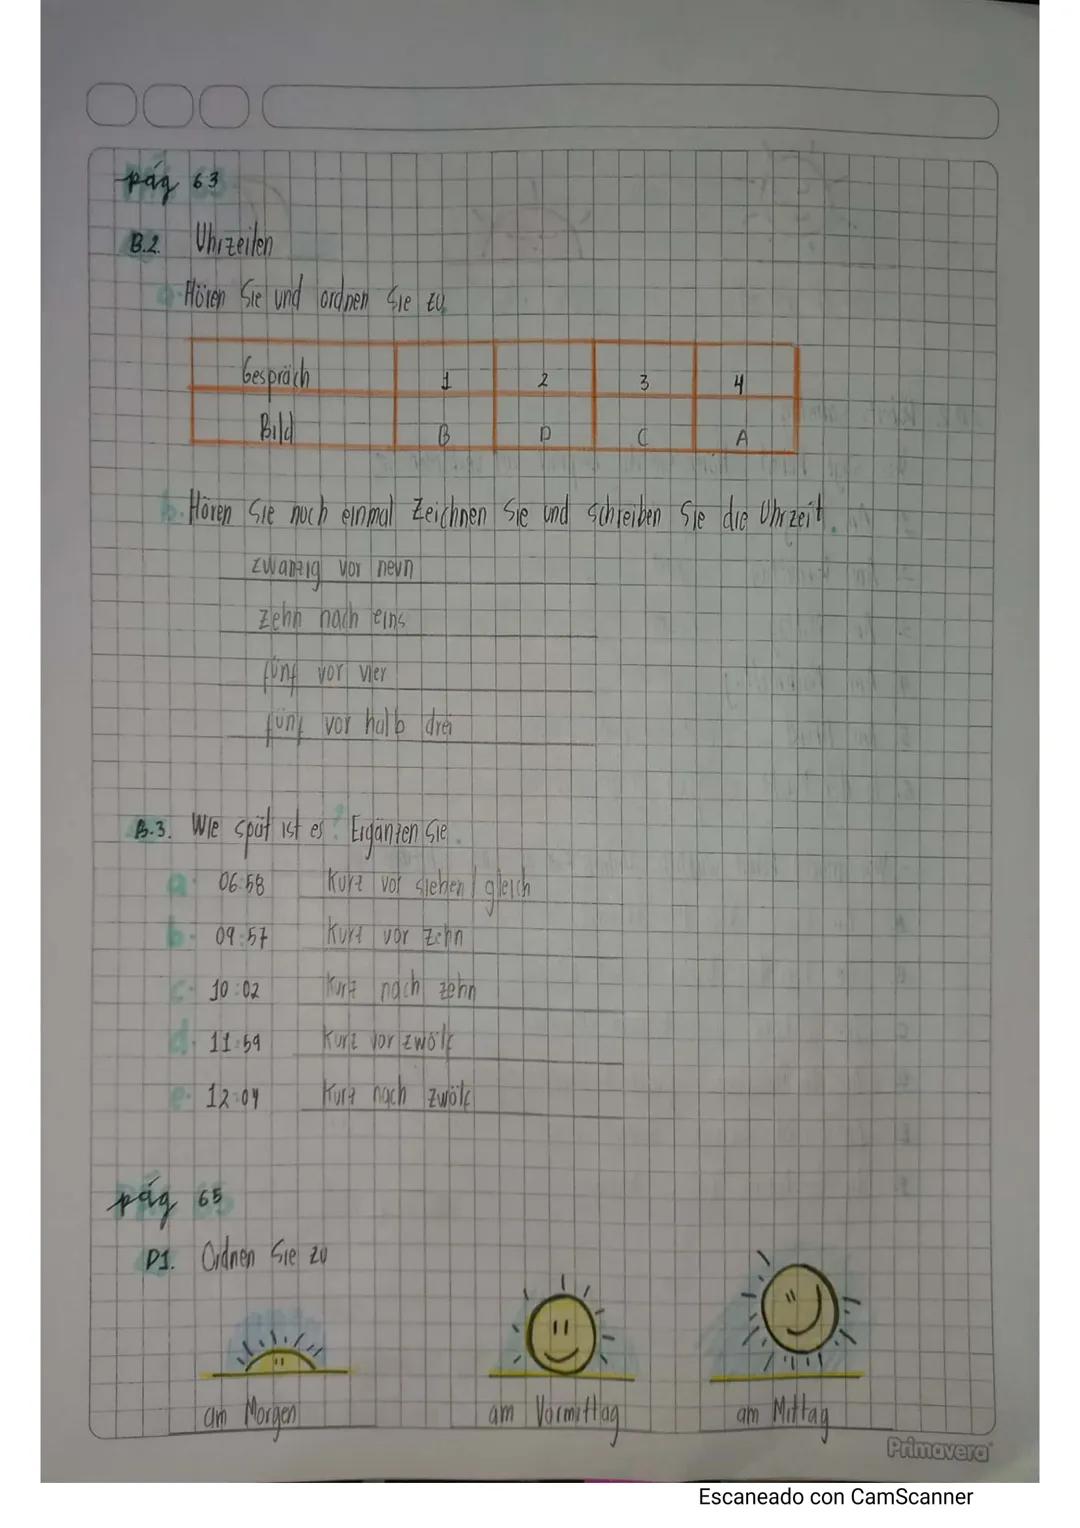 pág 63
B.2. Uhrzeiten
a. Hören Sie und ordnen Sie zu.
Gespräch 1 2 3 4
Bild B D C A
b. Hören Sie noch einmal Zeichnen Sie und schreiben Sie die Uhrzeit.
zwanzig vor neun
zehn nach eins
fünf vor vier
fünf vor halb drei
B.3. Wie spät ist es? Ergänzen Sie.
a. 06:58 Kurz vor sieben / gleich
b. 09:57 Kurz vor zehn
c. 10:02 Kurz nach zehn
d. 11:59 Kurz vor zwölf
e. 12:04 Kurz nach zwölf
pág 65
D1. Ordnen Sie zu
am Morgen am Vormittag am Mittag
Primavera
Escaneado con CamScanner